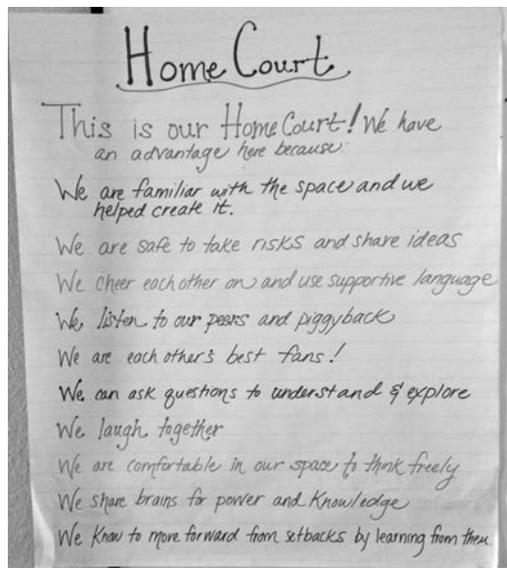 Home Court
This is our Home Court! We have
an advantage here because:
We are familiar with the space and we
helped create it.
We are safe to take risks and share ideas
We cheer each other on and use supportive language
We listen to our peers and piggyback
We are each other's best fans!
We can ask questions to understand & explore
We laugh together
We are comfortable in our space to think freely
We share brains for power and Knowledge
We Know to move forward from setbacks by learning from them.